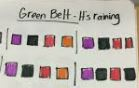 Green Belt - It's raining